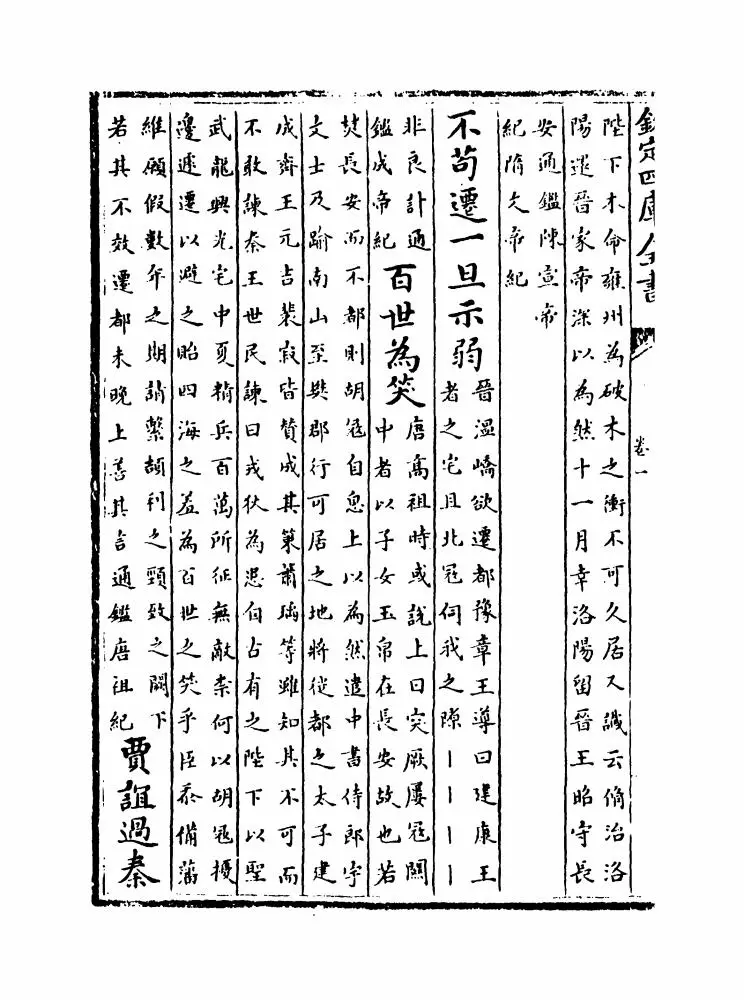 欽定四庫全書
卷一
陛下木命雍州為破木之衝不可久居又讖云脩治洛
陽還晉家帝深以為然十一月幸洛陽留晉王昭守長
安通鑑陳宣帝
紀隋文帝紀
不苟遷一旦示弱
晉温嶠欲遷都豫章王導曰建康王
者之宅且北冦伺我之隙丨丨丨丨
非良計通
鑑成帝紀
百世為笑
唐髙祖時或說上曰突厥屢冦關
中者以子女玉帛在長安故也若
焚長安而不都則胡冦自息上以為然遣中書侍郎宇
文士及踰南山至樊郡行可居之地將徙都之太子建
成齊王元吉裴寂皆賛成其策蕭瑀等雖知其不可而
不敢諫秦王世民諫曰戎狄為患自古有之陛下以聖
武龍興光宅中夏精兵百萬所征無敵柰何以胡冦擾
邊遽遷以避之貽四海之羞為百世之笑乎臣忝備藩
維願假數年之期請繫頡利之頸致之闕下
若其不效遷都未晚上善其言通鑑唐祖紀
賈誼過秦